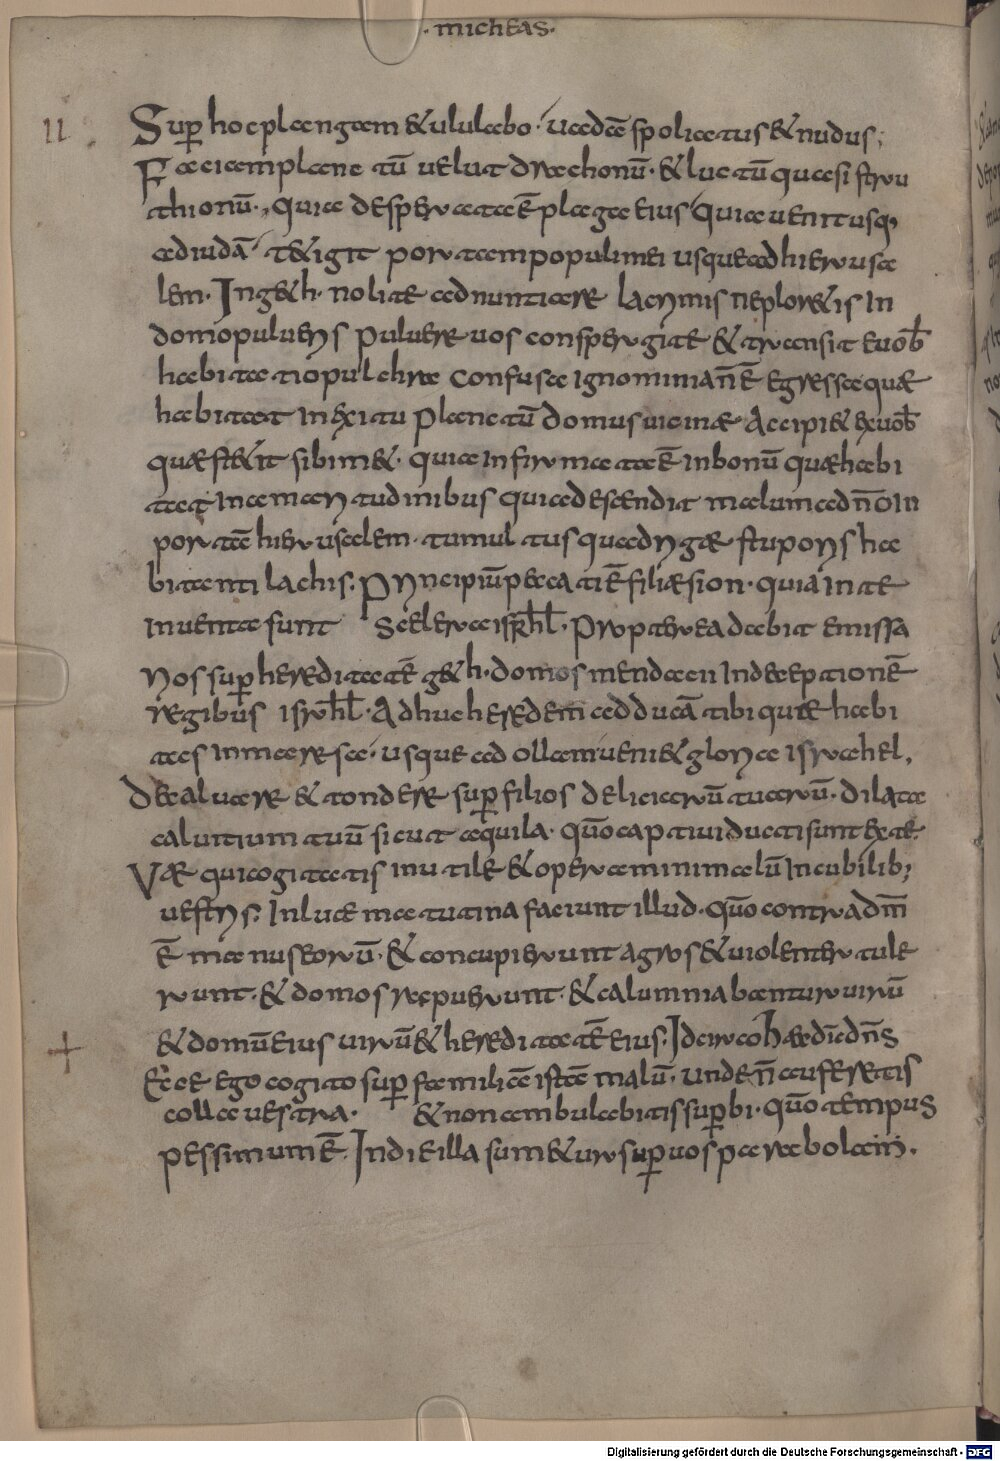 · micheas ·
II
Sup hoc plangam & ululabo · vadā spoliatus & nudus;
Faciam planctū velut drachonū · & luctū quasi stru
thionū · quia desperataē plaga eius quia venit usq;
ad iudā · t&igit portam populi mei usque ad hierusa
lem · In g&h · nolite adnuntiare lacrimis ne plor&is In
domo pulueris puluere uos conspergite & transite uob̄
habitatio pulchra confusa ignominia n̄ē egressa quae
habitat In exitu Planctū domus uicinae · Accipi& ex uob̄
quae st&it sibim& · quia Infirmataē In bonū quae habi
tat In amaritudinibus quia descendit malum a dn̄o In
portā hierusalem · tumultus quadrigae stuporis ha
bitanti lachis · Principiū peccatiē filiae sion · quia In te
Inuenta sunt scelera isrh̄l · Propterea dabit emissa
rios sup hereditatē g&h · domos mendacii In deceptionē
regibus isrh̄l · Adhuc heredem adducā tibi quae habi
tas In maresa · usque ad ollam veni& gloria israhel,
Decaluare & tondere sup filios deliciarū tuarū · dilata
caluitium tuū sicut aquila · qūo captiui ducti sunt ex te
Vae qui cogitatis inutile & operamini malū In cubilib;
uestris; In luce matutina faciunt illud · qūo contra dm̄
ē manus eorū · & concupierunt agros & uiolenter tule
runt · & domos rapuerunt · & calumniabantur uirū
& domū eius uirū & hereditatē eius; Idcirco haec dic̄ dn̄s
Ecce ego cogito sup familiā istā malū · unde n̄ auferetis
colla uestra · & non ambulabitis supbi · qūo tempus
pessimumē · In die illa sum&ur sup uos parabolam ·
Digitalisierung gefördert durch die Deutsche Forschungsgemeinschaft - DFG